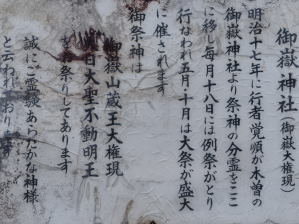 御嶽神社(御嶽大権現)
明治十七年に行者覚順が木曽の
御嶽神社より祭神の分霊をここ
に移し毎月十八日には例祭がとり
行なわれ五月十月は大祭が盛大
に催されます
御祭神は
御嶽山蔵王大権現
大日大聖不動明王
をお祭りしてあります
誠にご霊験あらたかな神様
と云われております